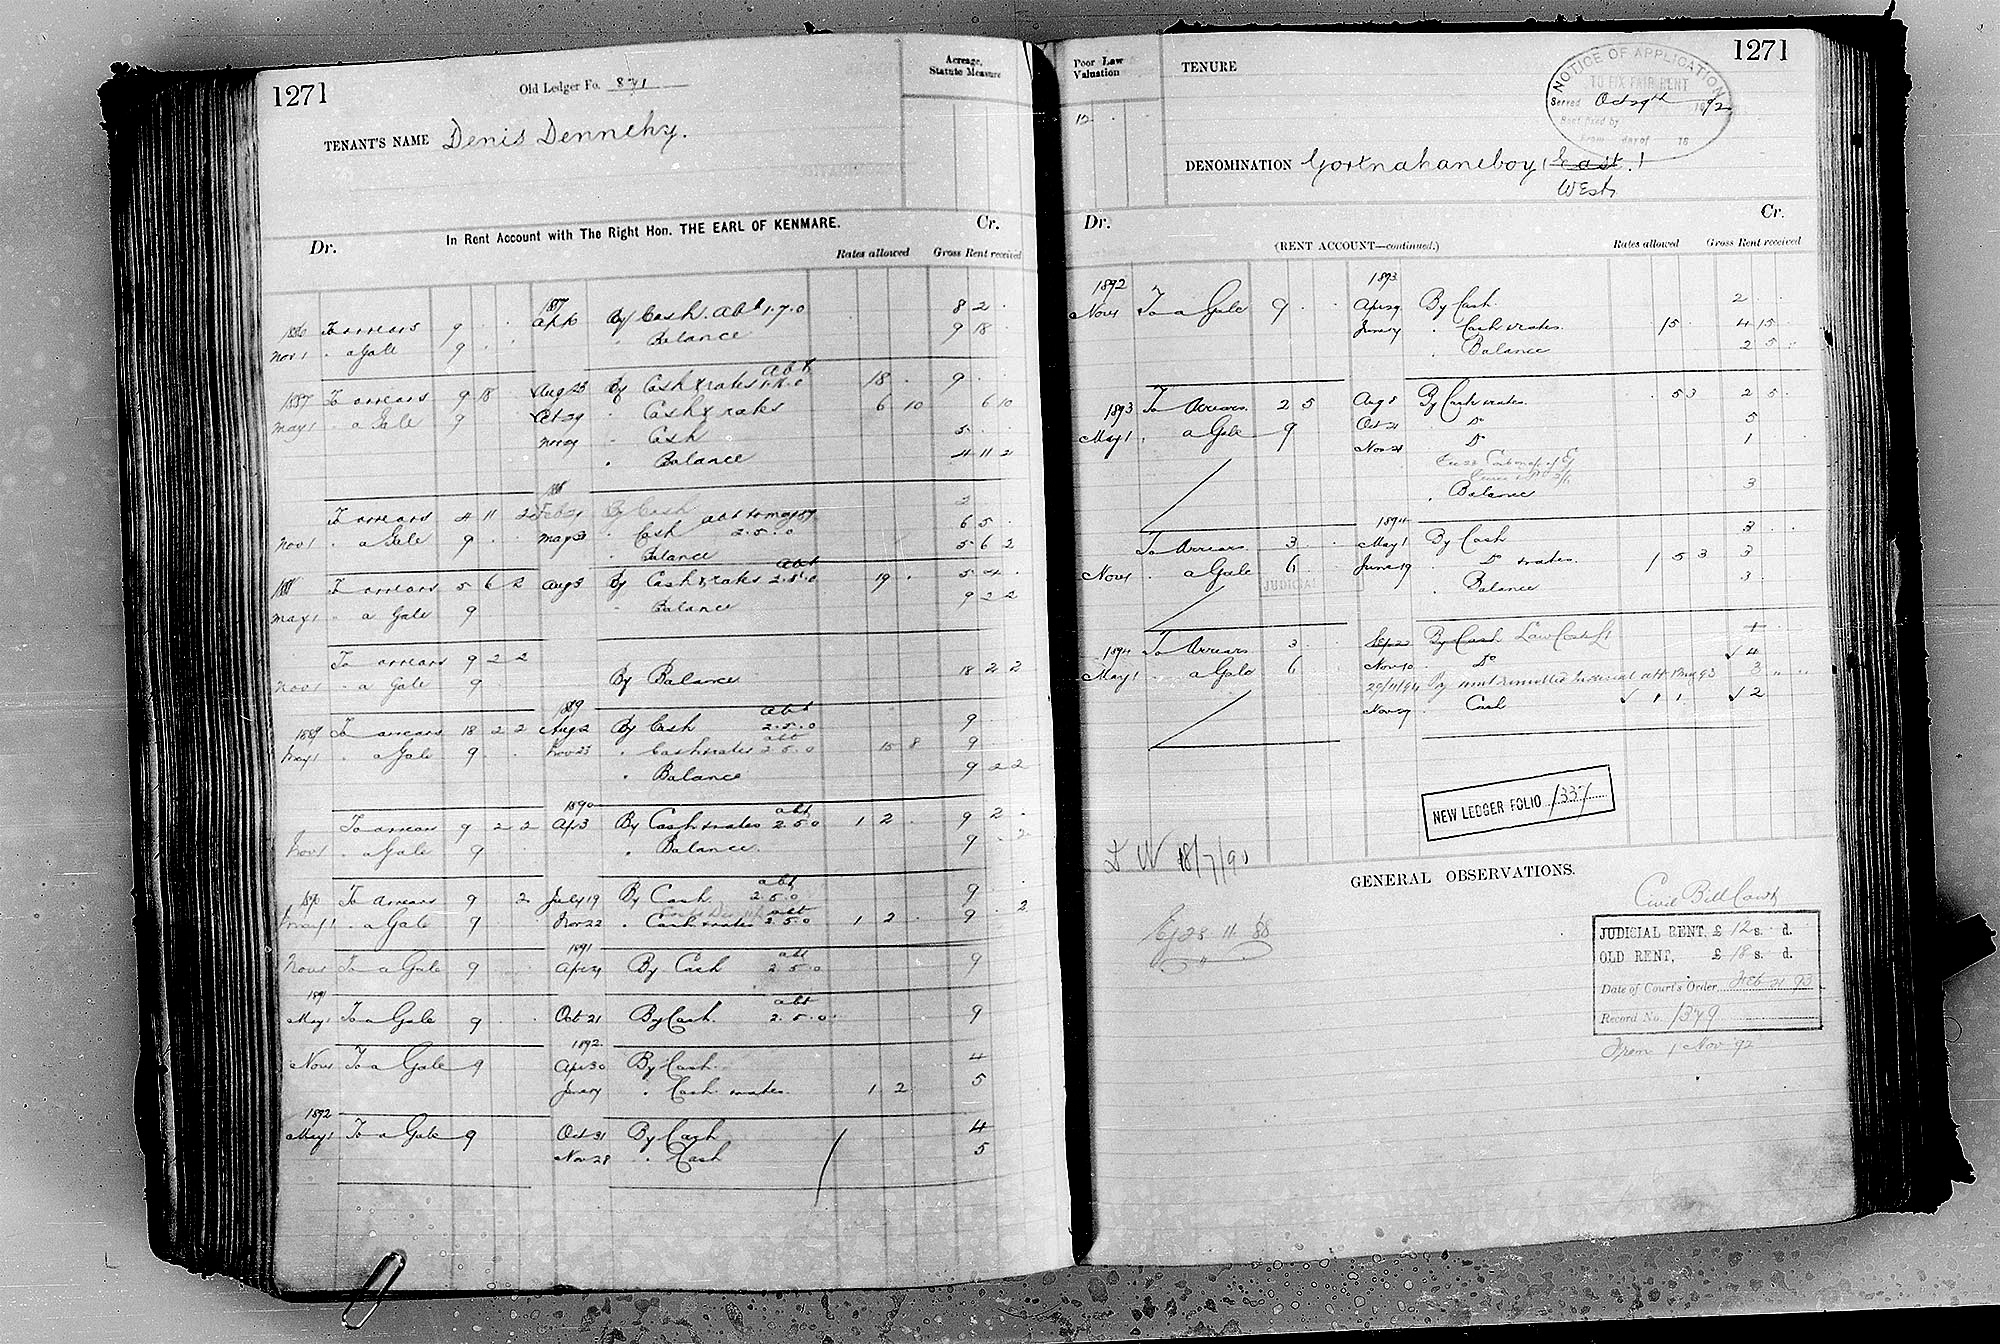 1271
Old Ledger Fo. 871
Acreage,
Statute Measure
TENANT'S NAME Denis Dennehy.
In Rent Account with The Right Hon. THE EARL OF KENMARE.
Dr. Cr.
Rates allowed Gross Rent received
1887
1886 To arrears 9 . . Apl 6 By Cash abt 1.7.0 8 2 .
Nov 1 . a Gale 9 . . " Balance 9 18 .
abt
1887 To arrears 9 18 . Aug 23 By Cash & rates 18 . 9 . .
May 1 . a Gale 9 . . Oct 29 . Cash & rates 6 10 6 10
Nov 29 . Cash 5 . .
. Balance 4 11 2
1888
To arrears 4 11 2 Feb 21 By Cash 2
Nov 1 . a Gale 9 . . May 3 . Cash abt to May 87 2.5.0 6 5 .
. Balance 5 6 2
abt
1888 To arrears 5 6 2 Aug 3 By Cash & rates 2.5.0 19 . 5 4 .
May 1 . a Gale 9 " Balance 9 2 2
To arrears 9 2 2
Nov 1 . a Gale 9 . By Balance 18 2 2
1889 abt
1889 To arrears 18 2 2 Aug 2 By Cash 2.5.0 9 . .
abt
May 1 . a Gale 9 . . Nov 23 . Cash & rates 2.5.0 15 8 9 . .
. Balance 9 2 2
1890 abt
To arrears 9 2 2 Ap 3 By Cash & rates 2.5.0 1 2 . 9 2 .
Nov 1 . a Gale 9 . Balance. 9 . 2
abt
1890 To arrears 9 . 2 July 19 By Cash 2.5.0 9 . .
abt
May 1 . a Gale 9 . Nov 22 . Cash & rates 2.5.0 1 2 . 9 . 2
1891 abt
Nov 1 To a Gale 9 . . Apl 24 By Cash 2.5.0 9
1891 abt
May 1 To a Gale 9 . . Oct 21 By Cash. 2.5.0 9
1892
Nov 1 To a Gale 9 Apl 30 By Cash 4
June 17 . Cash & rates. 1 2 5
1892
May 1 To a Gale 9 Oct 31 By Cash 4
Nov 28 . Cash 5
1271
Poor Law
Valuation
12 . .
TENURE
NOTICE OF APPLICATION
TO FIX FAIR RENT
Served Oct 29th 1892
Rent fixed by
From day of 18
DENOMINATION Gortnahaneboy (East)
West
Dr. Cr.
(RENT ACCOUNT—continued.)
Rates allowed Gross Rent received
1892 1893
Nov 1 To a Gale 9 . . Apl 29 By Cash 2 . .
June 17 . Cash & rates. 15 . 4 15 .
. Balance 2 5 "
1893 To Arrears 2 5 Aug 8 By Cash & rates. . 5 3 2 5 .
May 1 . a Gale 9 Oct 21 . Do 5
Nov 21 . Do 1
. Balance 3
1894
To Arrears 3 . May 1 By Cash 3 . .
Nov 1 . a Gale 6 June 19 . Do & rates. 1 5 3 3
JUDICIAL
. Balance 3
1894 To Arrears 3 . Sep 22 By Cash Law Costs
May 1 . a Gale 6 Nov 10 . Do 4
29/11/94 3 " "
Nov 29 . Cash 1 1 2
NEW LEDGER FOLIO 1337
18/7/91
GENERAL OBSERVATIONS.
Ej 28 11 88
Civil Bill Court
JUDICIAL RENT, £ 12 s. d.
OLD RENT, £ 18 s. d.
Date of Court's Order, Feb 21 93
Record No. 1379
From 1 Nov '92